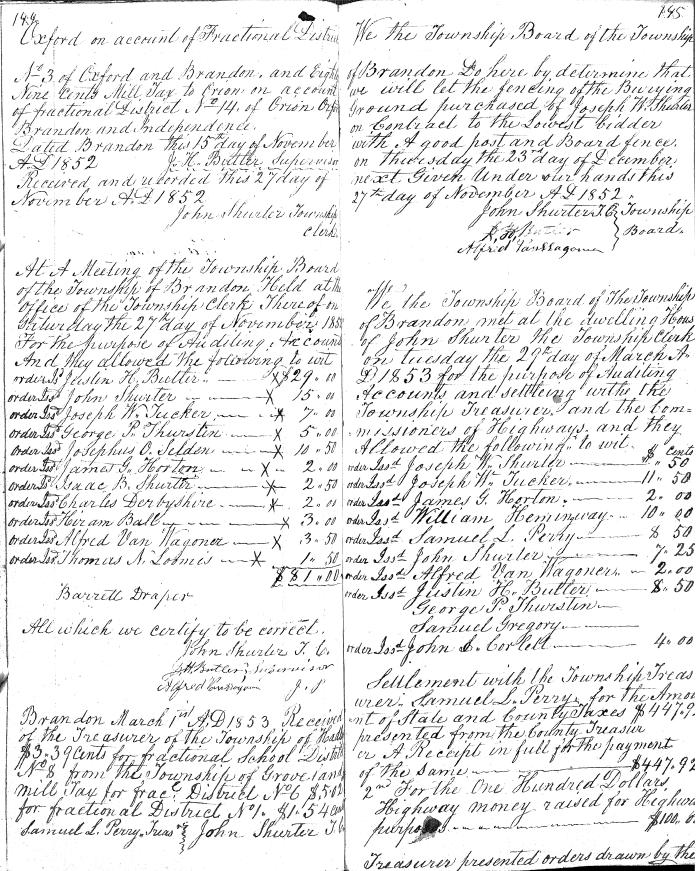 144
Oxford on account of Fractional District
No 3 of Oxford and Brandon. and Eighty
Nine Cents Mill Tax to Orion on account
of fractional District No 14, of Orion Oxford
Brandon and Independence.
Dated Brandon this 15th day of November
A D 1852 J. H. Butler, Supervisor
Received and recorded this 27 day of
November A D 1852
John Shurter Township
Clerk.
At A Meeting of the Township Board
of the Township of Brandon Held at the
Office of the Township Clerk There of on
Saturday the 27th day of November 185
For the purpose of Auditing Account
And they allowed the following to wit
order Isd Justin H. Butler X $29 " 00
order Isd John Shurter X 15 " 00
order Isd Joseph W. Tucker X 7 " 00
order Isd George P. Thurstin X 5 " 00
order Isd Josephus O. Selden X 10 " 50
order Isd James G. Horton X 2 " 00
order Isd Isaac B. Shurter X 2 " 50
order Isd Charles Derbyshire X 2 " 00
order Isd Hiram Ball X 3 " 00
order Isd Alfred Van Wagoner X 3 " 50
order Isd Thomas N. Loomis X 1 " 50
$81 " 00
Barrett Draper
All which we certify to be correct.
John Shurter T. C.
J H Butler, Supervisor
Alfred Van Wagoner J. P
Brandon March 1st A.D 1853 Received
of the Treasurer of the Township of
$3.39 Cents for fractional School District
No 8 from the Township of Groveland
mill Tax for fracl District No 6 $5.02
for fractional District No 1. $1.54 cents
Samuel L. Perry Treas } John Shurter T. C
145
We the Township Board of the Township
of Brandon Do here by determine that
we will let the fencing of the Burying
Ground purchased of Joseph W. Shurter
on Contract to the Lowest bidder
with A good post and Board fence,
on thuesday the 23rd day of December,
next Given Under our hands this
27th day of November A D 1852.
John Shurter T. C } Township
J. H. Butler } Board.
Alfred Van Wagoner
We the Township Board of The Township
of Brandon met at the dwelling Hous
of John Shurter the Township Clerk
on tuesday the 29th day of March A
D 1853 for the purpose of Auditing
Accounts and settleing withe the
Township Treasurer. and the Com-
missioners of Highways. and they
Allowed the following to wit. $ cents
order Issd Joseph W. Shurter " 50
order Issd Joseph W. Tucker 11 " 50
order Issd James G. Horton. 2 " 00
order Issd William Heminway 10 " 00
order Issd Samuel L. Perry 8 50
order Issd John Shurter 7 " 25
order Issd Alfred Van Wagoner 2 " 00
order Issd Justin H. Butler 8 " 50
George P. Thurstin
Samuel Gregory
order Issd John L. Corlett 4 " 00
Settlement with the Township Treas
urer. Samuel L. Perry. for the Amou
nt of State and County Taxes $447.9
presented from the County Treasur
er A Receipt in full for the payment
of the Same $447.92
2nd For the One Hundred Dollars.
Highway money raised for Highway
purposes $100.0
Treasurer presented orders drawn by the